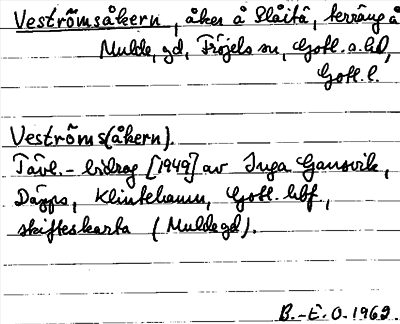 Veströmsåkern, åker å Släitå, terräng å
Mulde, gd, Fröjels sn, Gotl. s. hd,
Gotl. l.
Veströms(åkern).
Tävl.-bidrag [1949] av Inga Gansvik,
Däpps, Klintehamn, Gotl. hbf.,
skifteskarta (Mulde gd).
B.-E. O. 1969.